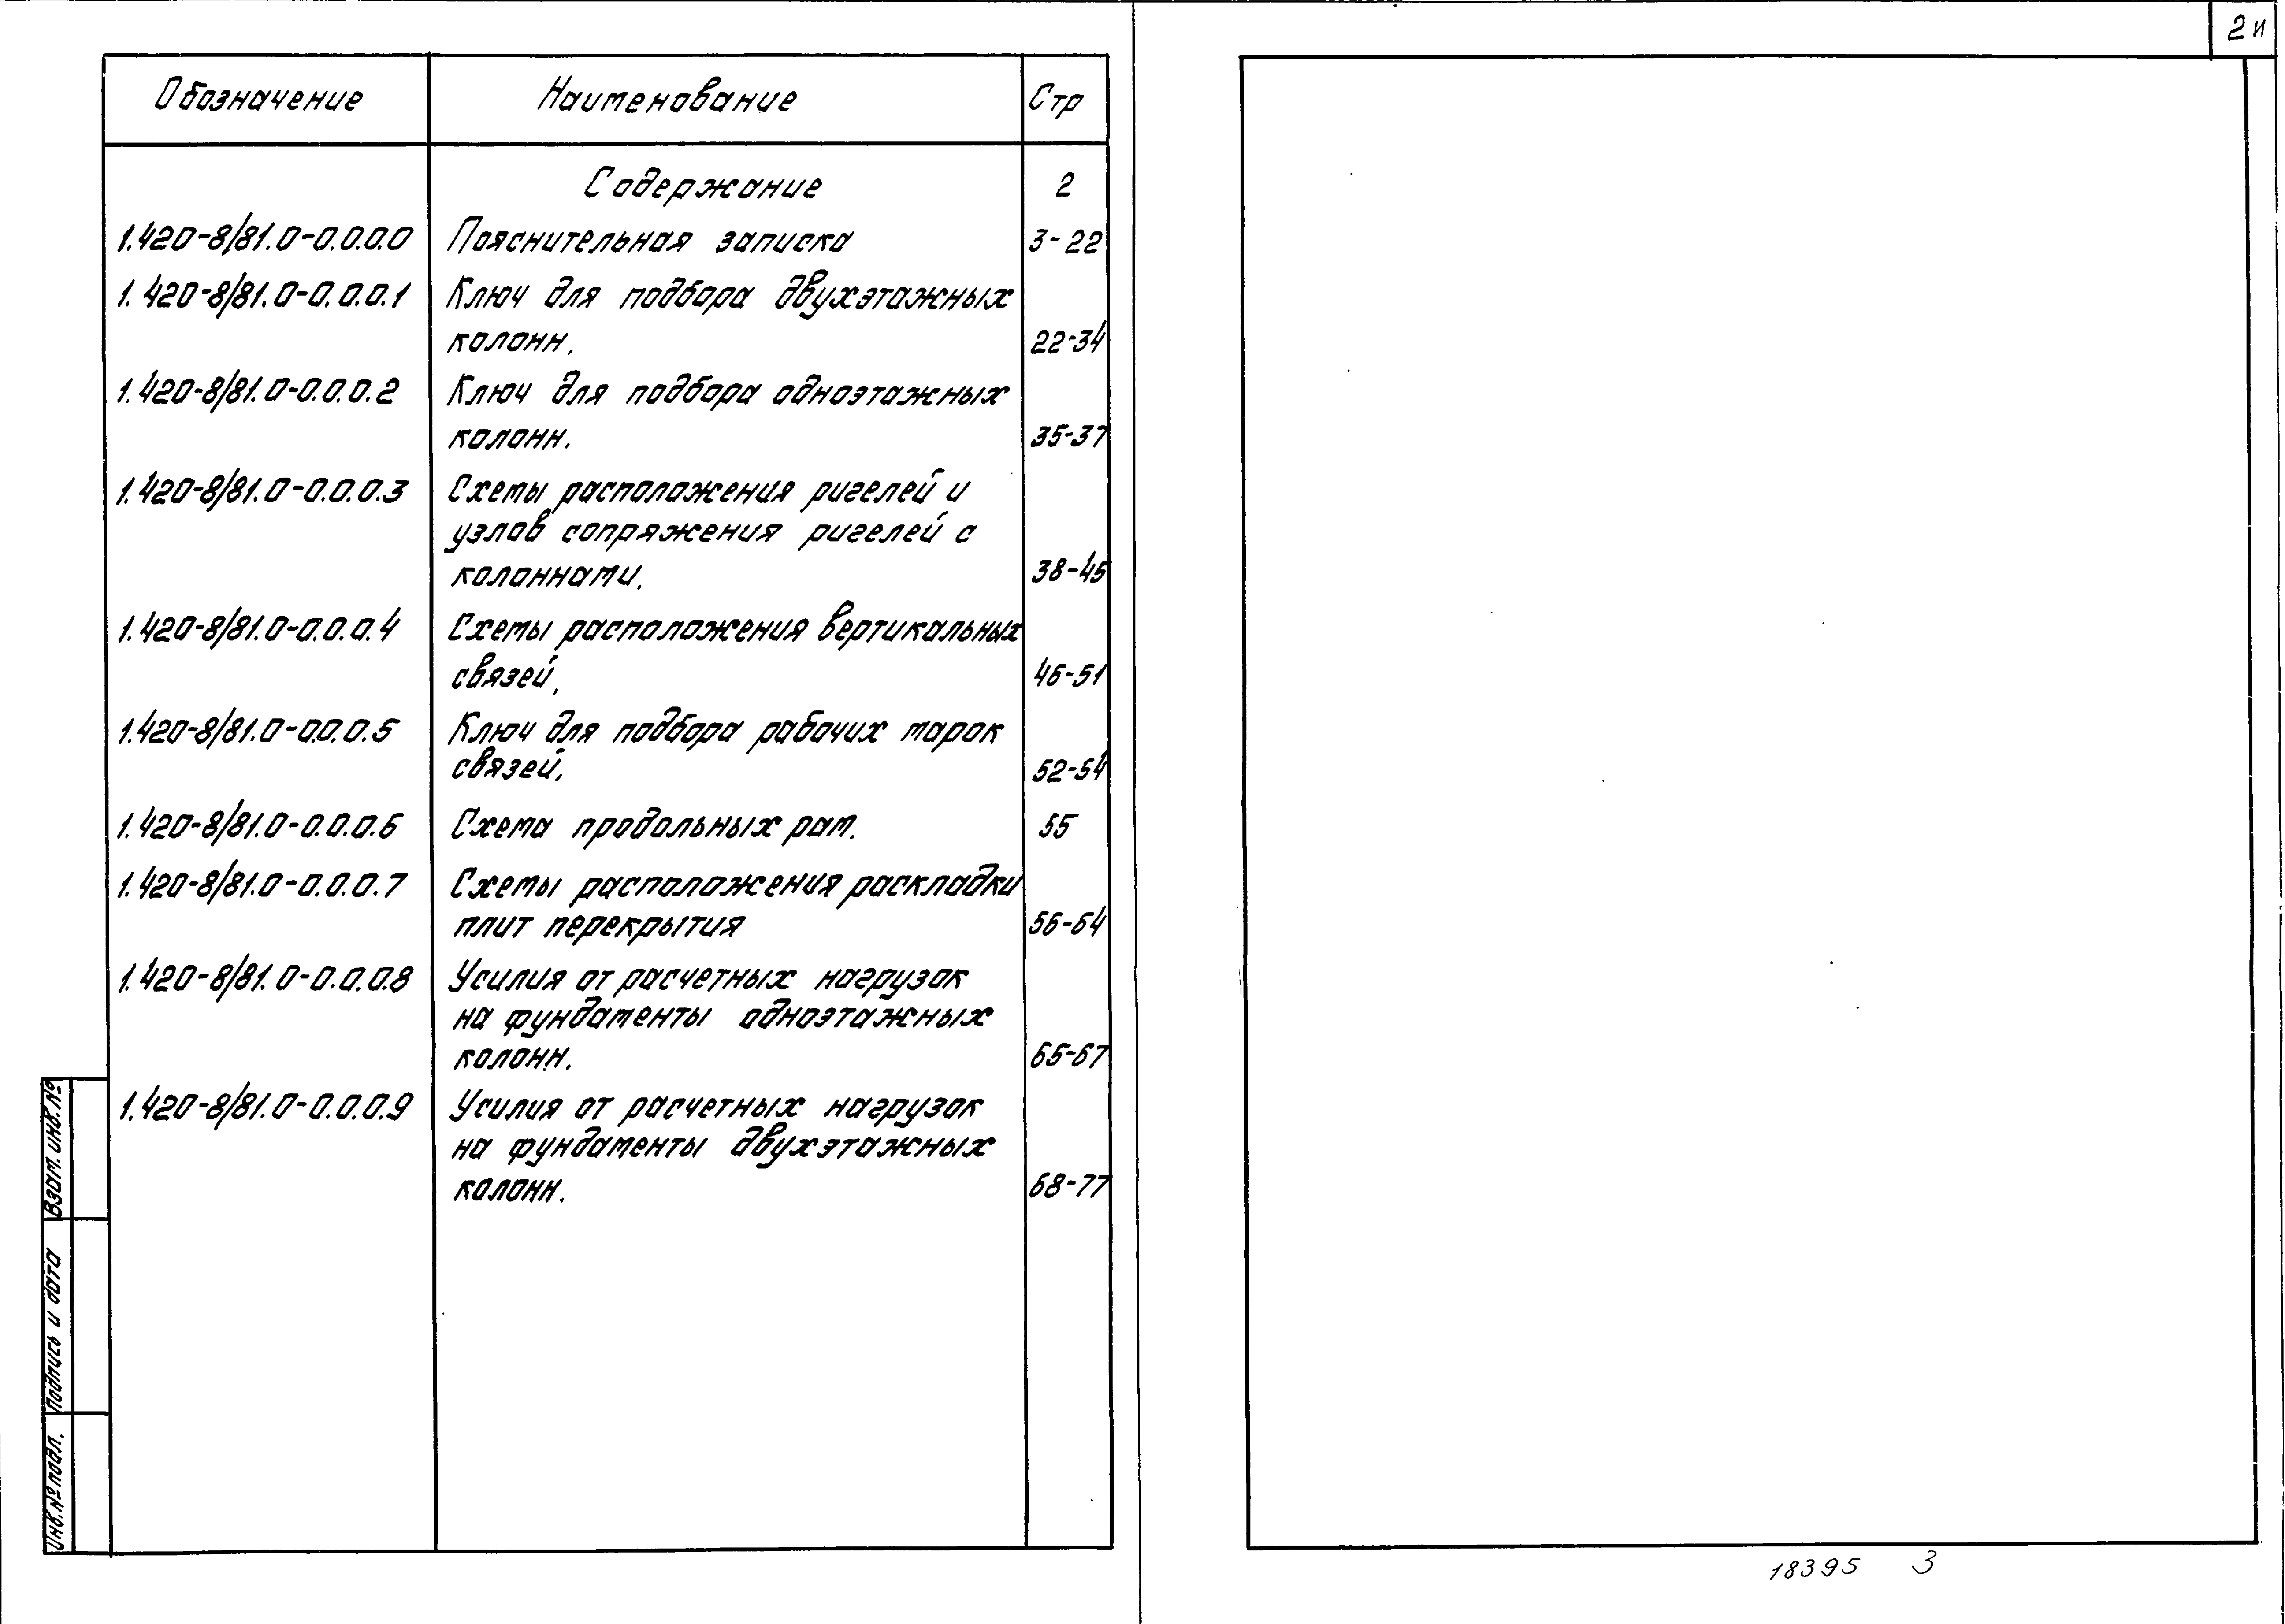 2и
Обозначение Наименование Стр
Содержание 2
1.420-8/81.0-0.0.0.0 Пояснительная записка 3-22
1.420-8/81.0-0.0.0.1 Ключ для подбора двухэтажных
колонн. 22-34
1.420-8/81.0-0.0.0.2 Ключ для подбора одноэтажных
колонн. 35-37
1.420-8/81.0-0.0.0.3 Схемы расположения ригелей и
узлов сопряжения ригелей с
колоннами. 38-45
1.420-8/81.0-0.0.0.4 Схемы расположения вертикальных
связей. 46-51
1.420-8/81.0-0.0.0.5 Ключ для подбора рабочих марок
связей. 52-54
1.420-8/81.0-0.0.0.6 Схема продольных рам. 55
1.420-8/81.0-0.0.0.7 Схемы расположения раскладки
плит перекрытия 56-64
1.420-8/81.0-0.0.0.8 Усилия от расчетных нагрузок
на фундаменты одноэтажных
колонн. 65-67
1.420-8/81.0-0.0.0.9 Усилия от расчетных нагрузок
на фундаменты двухэтажных
колонн. 68-77
Взам. инв. №
Подпись и дата
Инв. № подл.
18395 3